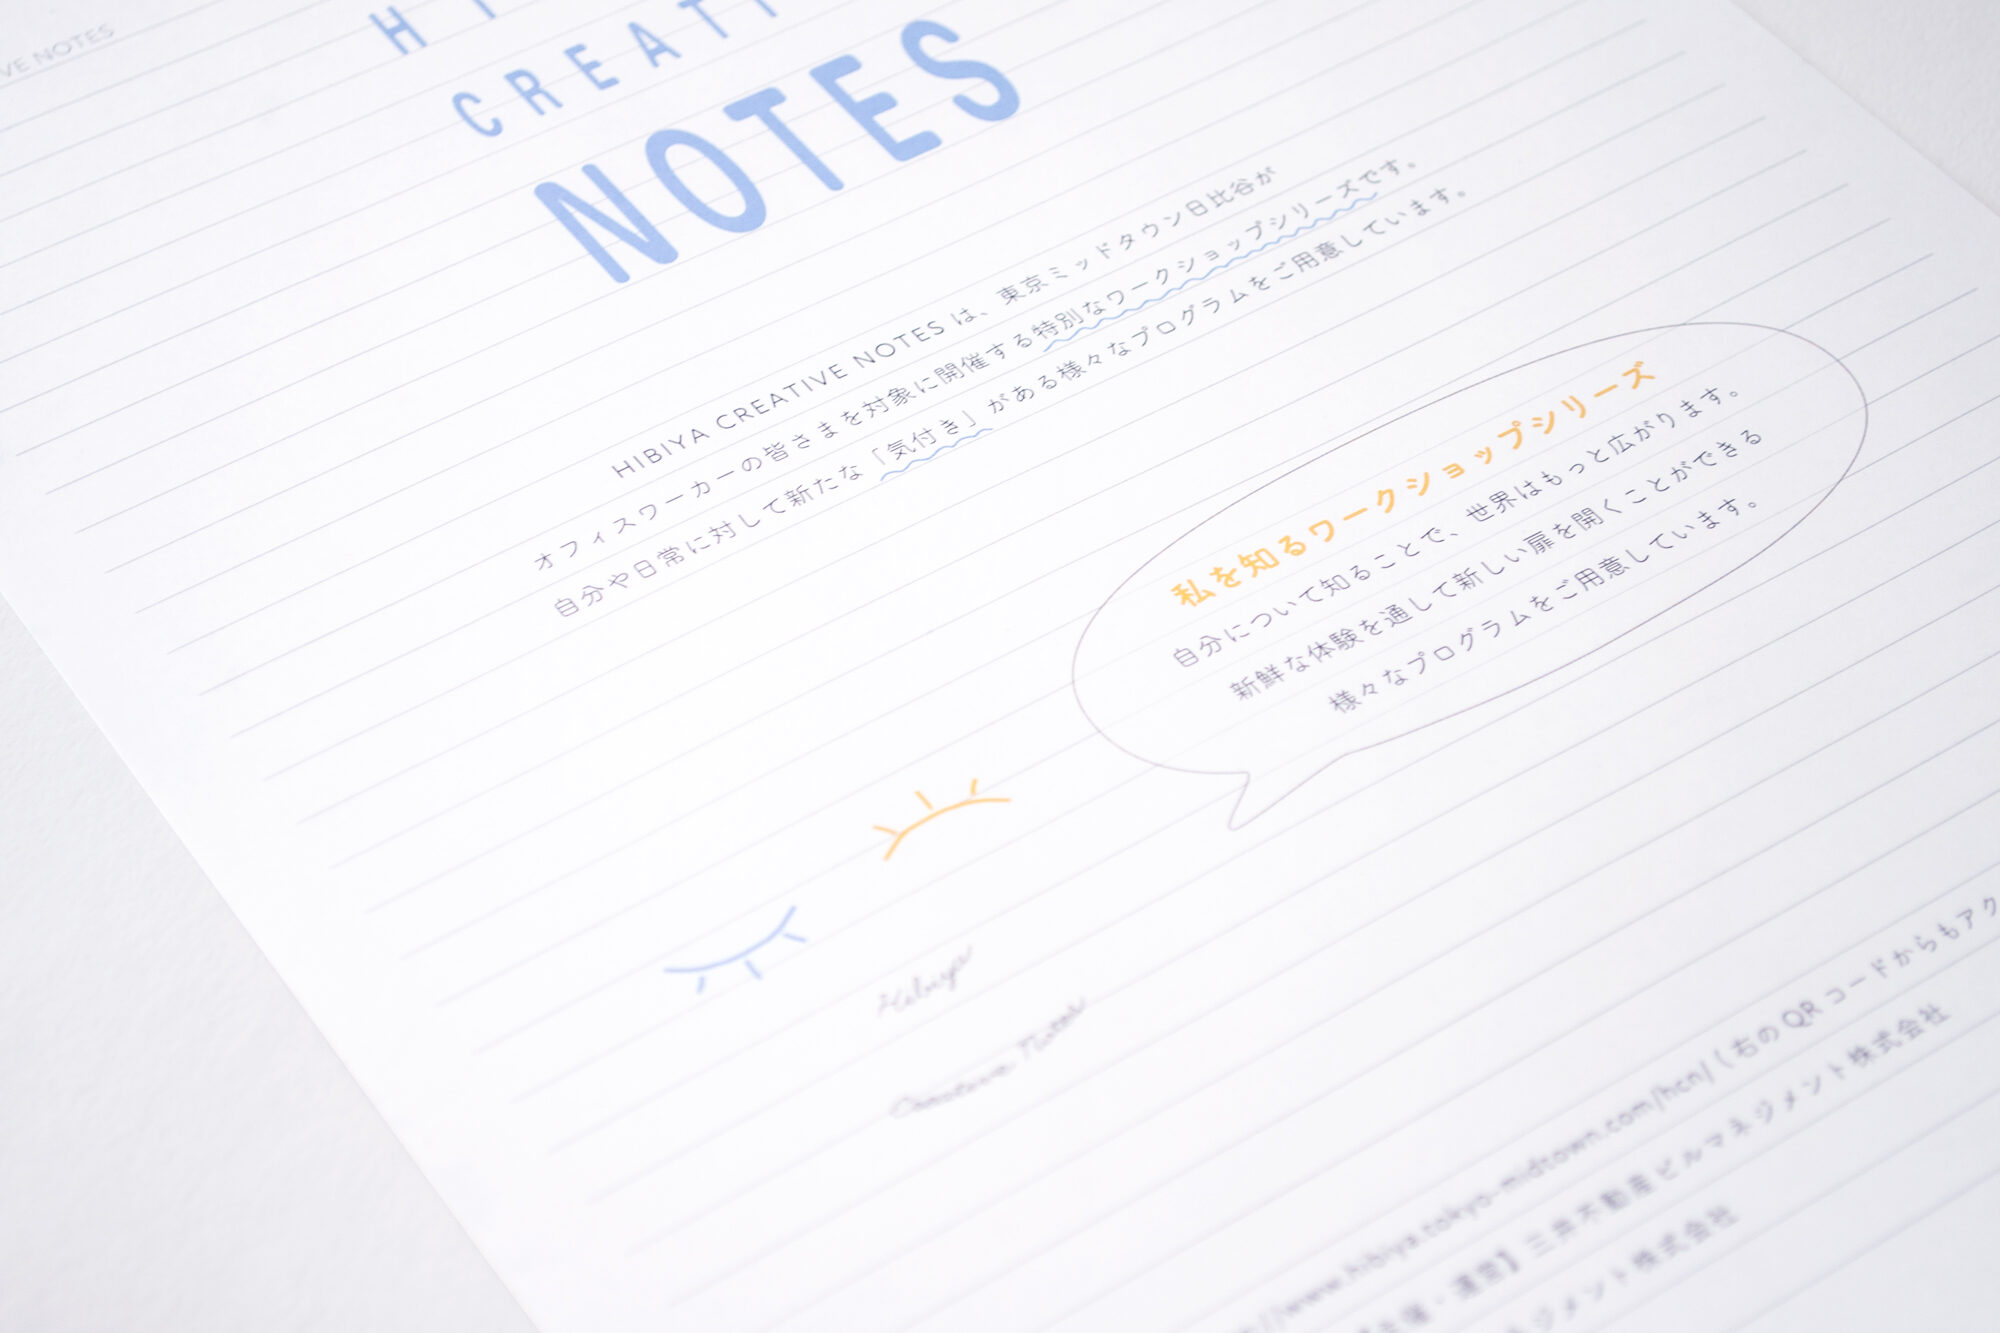 VE NOTES
H
CREATI
NOTES
HIBIYA CREATIVE NOTES は、東京ミッドタウン日比谷が
オフィスワーカーの皆さまを対象に開催する特別なワークショップシリーズです。
自分や日常に対して新たな「気付き」がある様々なプログラムをご用意しています。
私を知るワークショップシリーズ
自分について知ることで、世界はもっと広がります。
新鮮な体験を通して新しい扉を開くことができる
様々なプログラムをご用意しています。
Hibiya
Creative Notes
//www.hibiya.tokyo-midtown.com/hcn/（右の QR コードからもアク
主催・運営】三井不動産ビルマネジメント株式会社
ネジメント株式会社